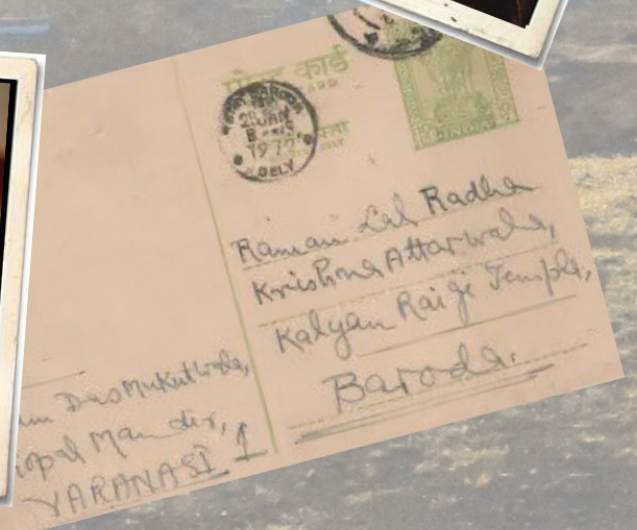 पोस्ट कार्ड
CARD
BARODA
25 JAN
1972
DELY
Raman Lal Radha
Krishna Attarwala,
Kalyan Raiji Temple,
Baroda.
Das Mukutwala,
opal Mandir,
VARANASI 1